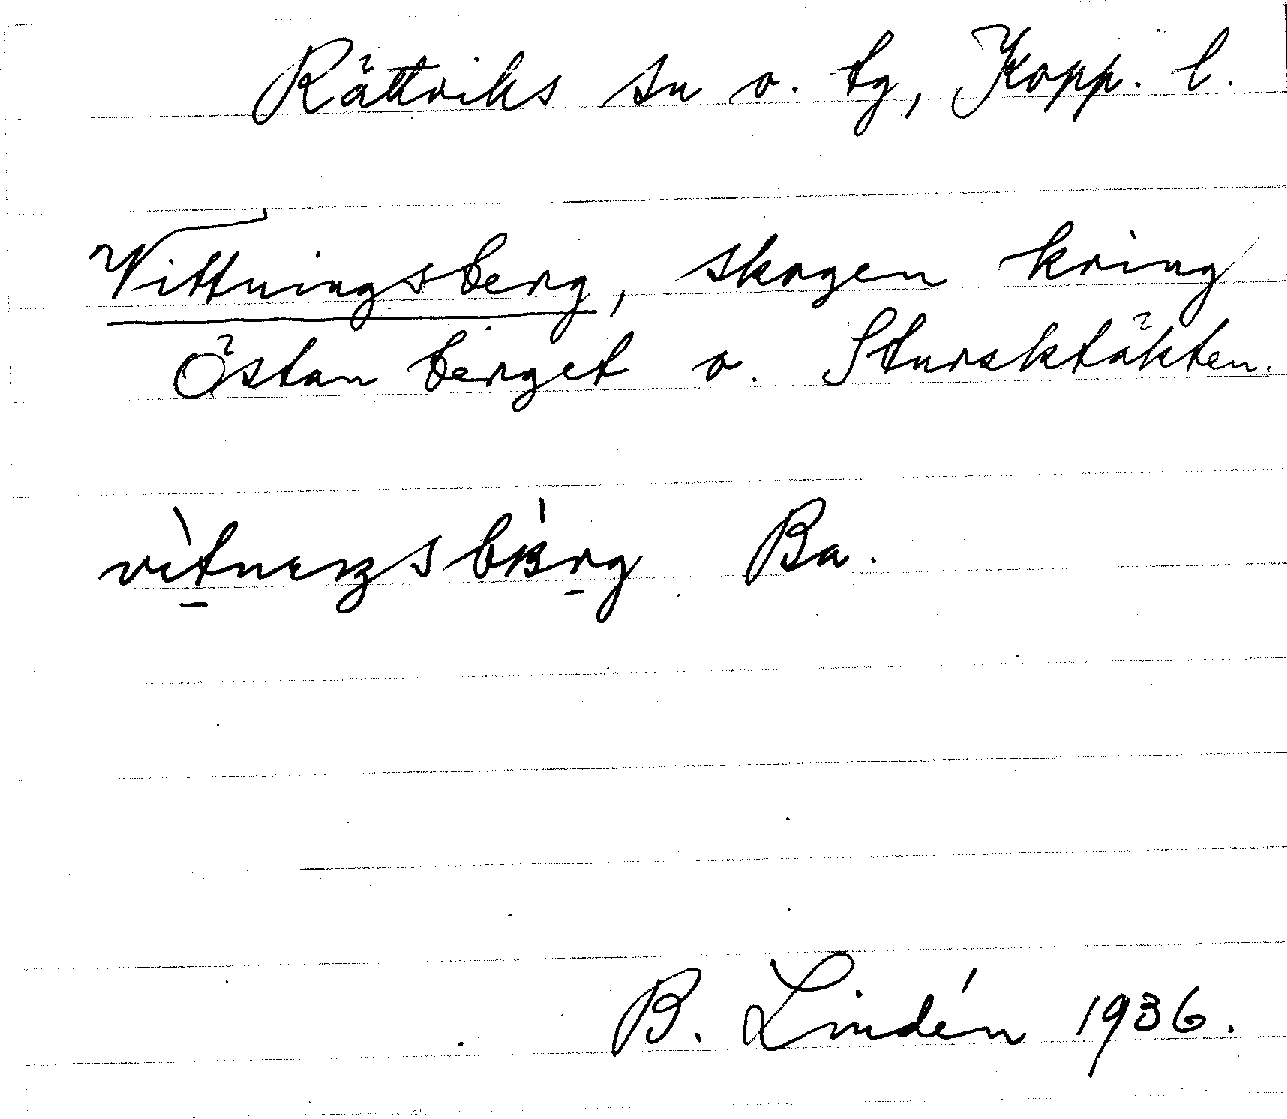 Rättviks sn o. tg, Kopp. l.
Vittningsberg, skogen kring
Östanberget o. Stursktäkten.
Ba.
B. Lindén 1936.